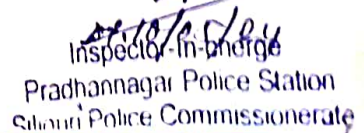 Inspector-in-charge
Pradhannagar Police Station
Siliguri Police Commissionerate